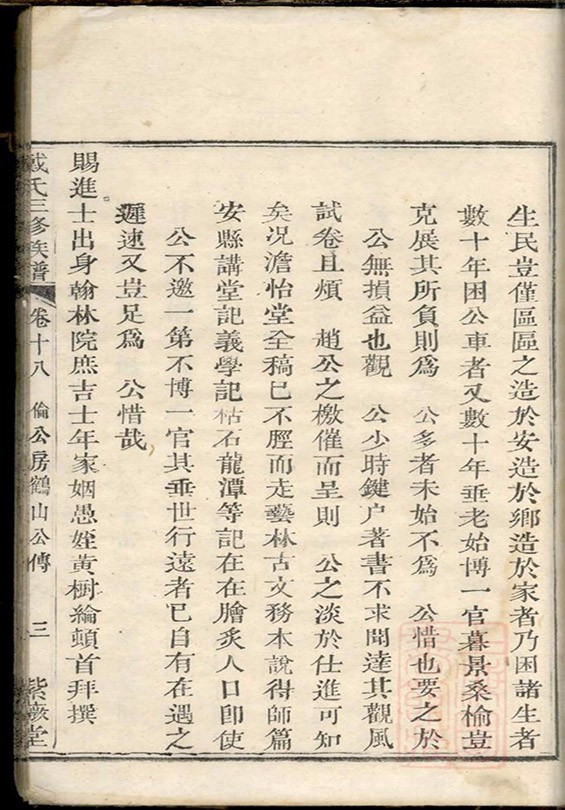 生民豈僅區區之造於安造於鄉造於家者乃困諸生者
數十年困公車者又數十年垂老始博一官暮景桑榆豈
克展其所負則爲　公多者未始不爲　公惜也要之於
公無損益也觀　公少時鍵户著書不求聞達其觀風
試卷且煩　趙公之檄催而呈則　公之淡於仕進可知
矣况澹怡堂全稿已不脛而走藝林古文務本說得師篇
安縣講堂記義學記枯石龍潭等記在在膾炙人口卽使
公不邀一第不博一官其垂世行遠者已自有在遇之
遲速又豈足爲　公惜哉
賜進士出身翰林院庶吉士年家姻愚姪黃樹綸頓首拜撰
戴氏三修族譜　卷十八　倫公房鶴山公傳　三　紫薇堂